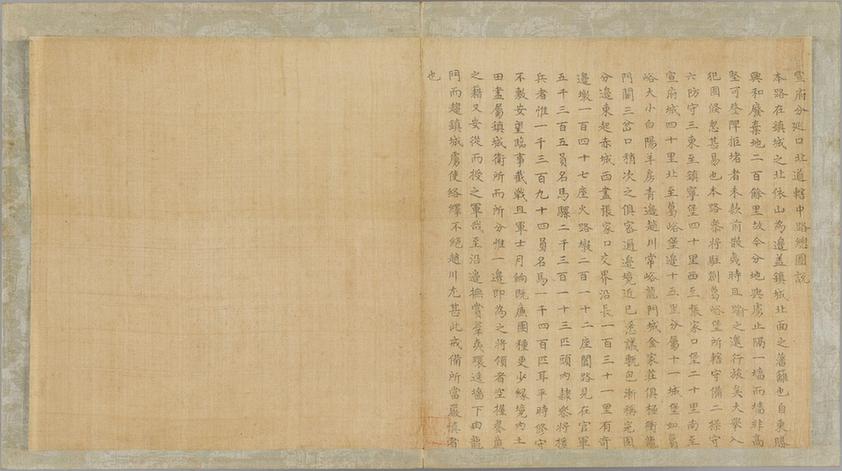 宣府分廵口北道轄中路總圖說
本路在鎮城之北依山為邊葢鎮城北面之藩籬也自東勝
興和廢棄地二百餘里故今分地與虜止隔一墻而墻非高
堅可登陴拒堵者未款前散夷時且踰之邊行旅矣大舉入
犯團倐忽甚易也本路叅將駐劄葛峪堡所轄守備二操守
六防守三東至鎮寧堡四十里西至張家口堡二十里南至
宣府城四十里北至葛峪堡邊十五里分屬十一城堡如葛
峪大小白陽羊房青邊趙川常峪龍門城金家莊俱極衝龍
門關三岔口稍次之俱窵逼邊境近已悉議甎包漸稱完固
分邊東起赤城西盡張家口交界沿長一百三十一里有奇
邊墩一百四十七座火路墩二百一十二座闔路見在官軍
五千三百五員名馬騾二千三百一十三匹頭內隸叅將援
兵者惟一千三百九十四員名馬一千四百匹耳平時修守
不敷安望臨事截戰且軍士月餉既亷團種更少緣境內土
田盡屬鎮城衛所而所分惟一邊即為之將領者空擁叅
之籍又安從而授之軍哉至沿邊撫賞羣夷環遶墻下由龍
門而趨鎮城虜使絡繹不絕趙川尤甚此戒備所當嚴慎者
也